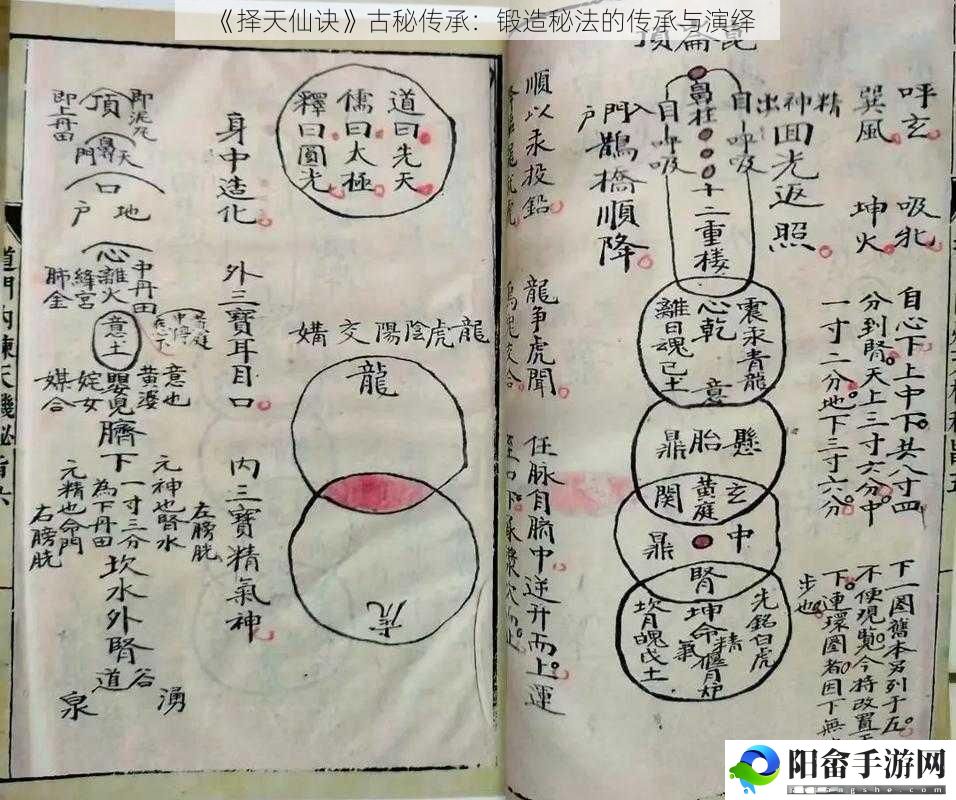 《择天仙诀》古秘传承：锻造秘法的传承与演绎
崑崙頂
呼玄
吸牝
巽風
坤火
自心下上中下共八寸四
分到腎天上三寸六分中
一寸二分地下三寸六分
下一圖舊本另列于五
不便現覽今将改置于
下連環圖者因下無
步也
精神出
自呼吸
鼻柱
自呼吸
門入
户
面光返照
十二重楼
鵲橋順降
震汞青龍
心乾
意
離日魂己土
懸胎鼎
玄
黄庭
関
中
鼎
腎
坤命
坎月魄戊土
順以汞投鉛
龍争虎聞
任脉自臍中逆升而上運
道曰先天
儒曰太極
釋曰圓光
龍虎陰陽交媾
龍
虎
身中造化
外三寶耳目口
内三寶精氣神
即泥丸
頂
即上丹田
天
鼻
門
口
地
户
中丹田
心
離火
絳宮
肺金
意土
意也
黄婆
嬰児
姹女
媒合
臍下一寸三分
為下丹田
元神也腎水
左膀胱
元精也命門
右膀胱
坎水外腎
谷道
湧泉
道門内煉天機秘旨六
阳畲手游网